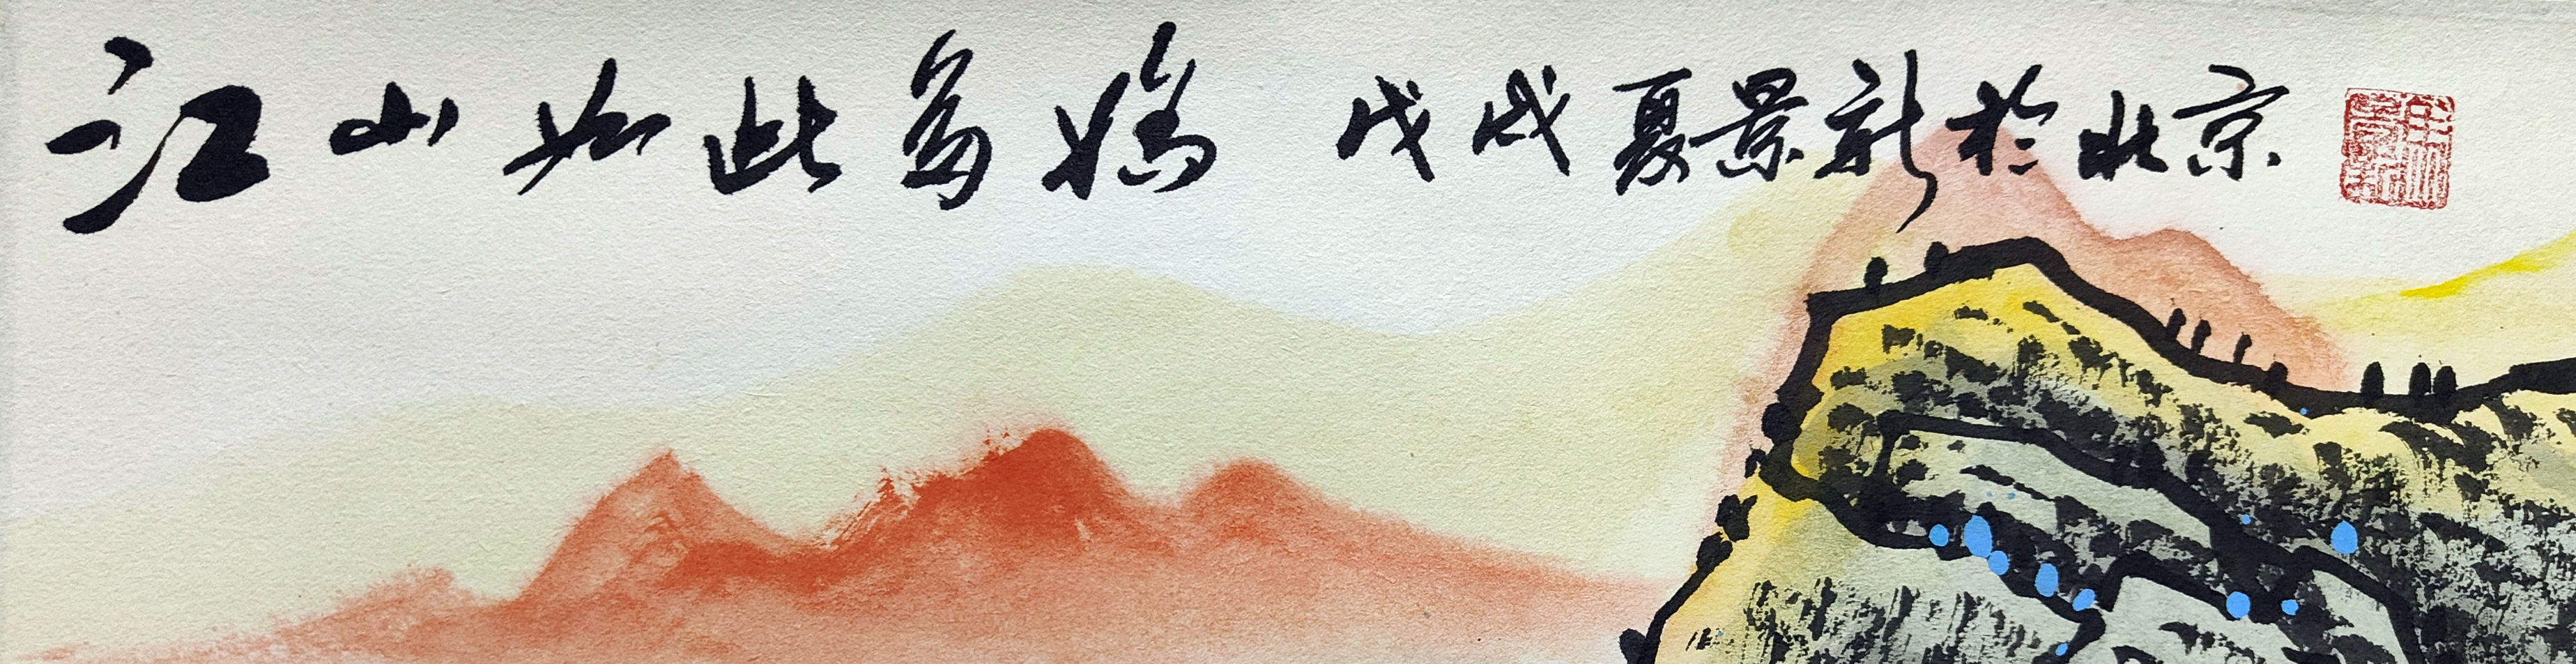 江山如此多娇 戊戌夏景新於北京